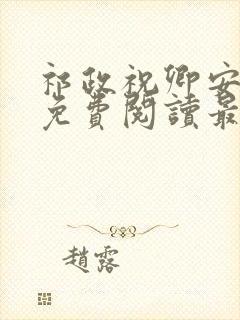 祁政祝卿安
免費閱讀最
趙露